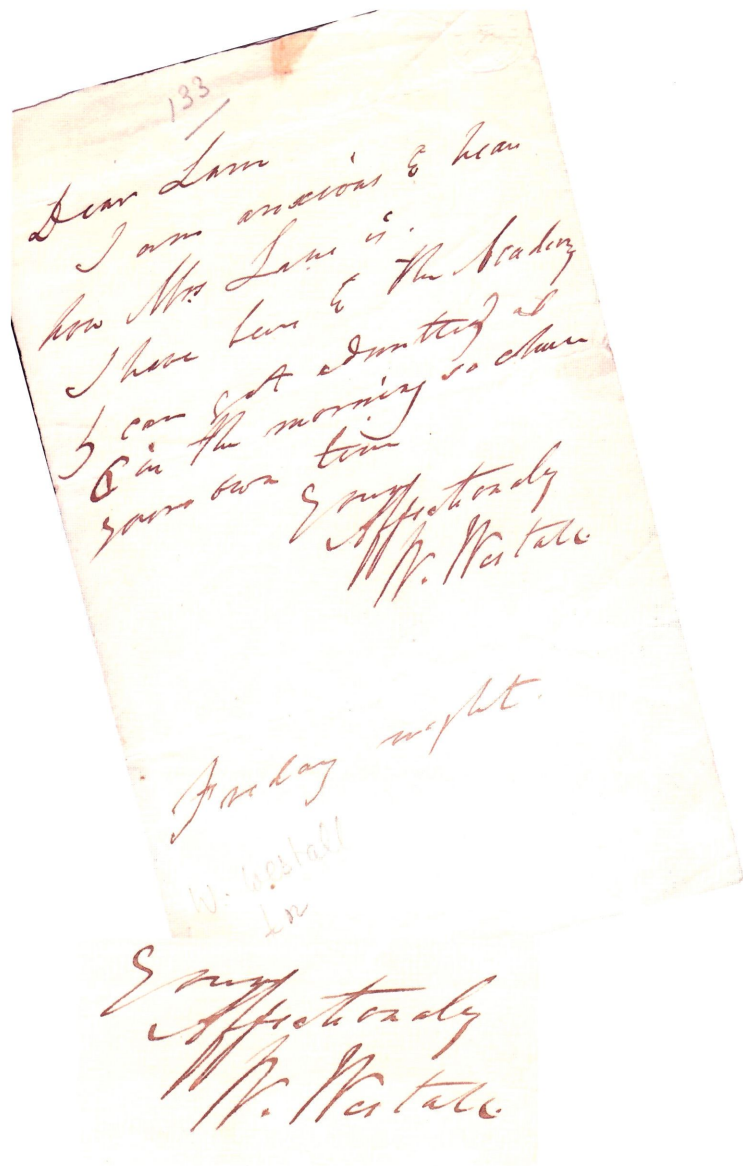 133
Dear Lane
I am anxious to hear
how Mrs Lane is.
I have been to the Academy
I can get admitted at
6 in the morning so chuse
your own time
Yours
Affectionaly
W. Westall
Friday night.
W. Westall
Yours
Affectionaly
W. Westall